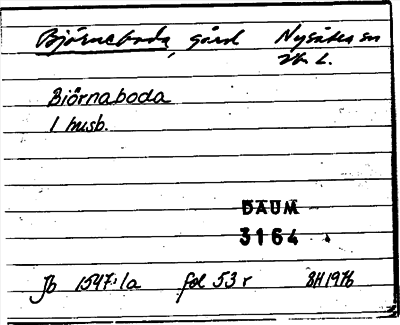 Björneboda, gård Nysätra sn
Vb L.
Biörnaboda
1 husb.
DAUM
3164
Jb 1547:1a fol 53 r BH 1976